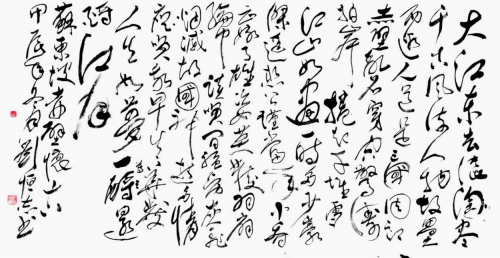 大江东去浪淘尽
千古风流人物故垒
西边人道是三國周郎
赤壁乱石穿空惊涛
拍岸捲起千堆雪
江山如画一时多少豪
傑遥想公瑾当年小乔
初嫁了雄姿英發羽扇
纶巾谈笑间强虏灰飛
烟灭故國神遊多情
应笑我早生华發
人生如夢一樽還
酹江月
蘇東坡赤壁懷古
甲辰年冬月劉恒志书